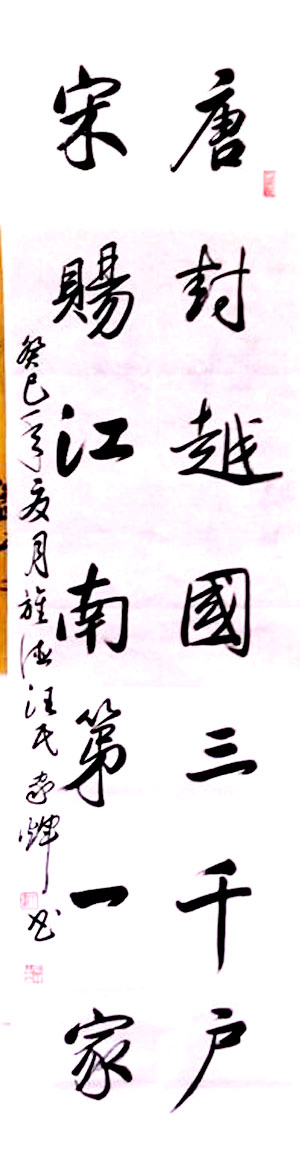 唐封越國三千户
宋賜江南第一家
癸巳年夏月旌德汪氏家輝书